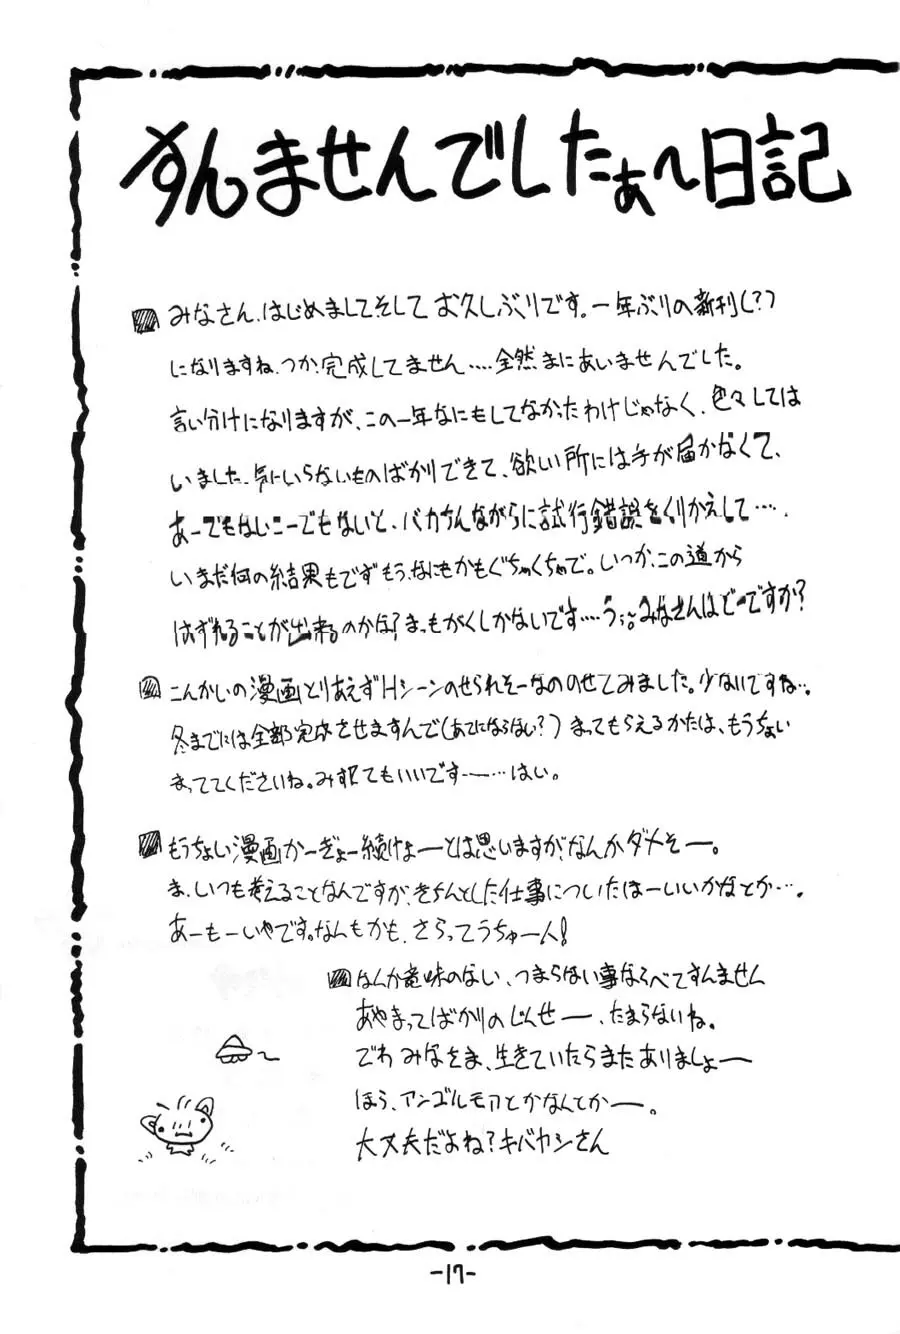 すんませんでしたぁ〜日記
みなさん、はじめましてそしてお久しぶりです。一年ぶりの新刊(?)
になりますね、つか完成してません‥‥全然まにあいませんでした。
言い分けになりますが、この一年なにもしてなかったわけじゃなく、色々しては
いました、気にいらないものばかりできて、欲しい所には手が届かなくて、
あーでもないこーでもないと、バカちんながらに試行錯誤をくりかえして‥‥、
いまだ何の結果もでずもう、なにもかもぐちゃくちゃで。いつか、この道から
はずれることが出来るのかな?まっもがくしかないです‥‥う;。みなさんはどーですか?
こんかいの漫画とりあえずHシーンのせられそーなののせてみました。少ないですね‥。
冬までには全部完成させますんで(あてにならない?)まってもらえるかたは、もうちょい
まっててくださいね。みすててもいいですー‥‥はい。
もうちょい漫画かーぎょー続けょーとは思いますが、なんかダメそー。
ま、いつも考えることなんですが、きちんとした仕事についたほーいいかなとか‥‥。
あーもーいやです。なんもかも、さらってうちゅー人!
なんか意味のない、つまらない事ならべてすんません
あやまってばかりのじんせー、たまらないね。
でわ みなさま、生きていたらまたありましょー
ほら、アンゴルモアとかなんとかー。
大丈夫だよね?キバヤシさん
-17-